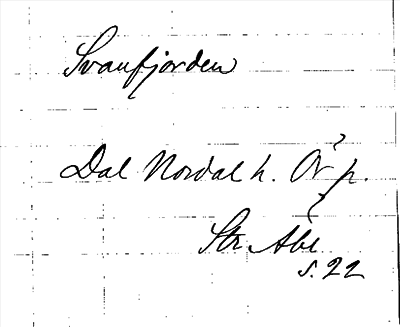 Svanfjorden
Dal Nordal h. Ör p.
Str. Åbl
s. 22